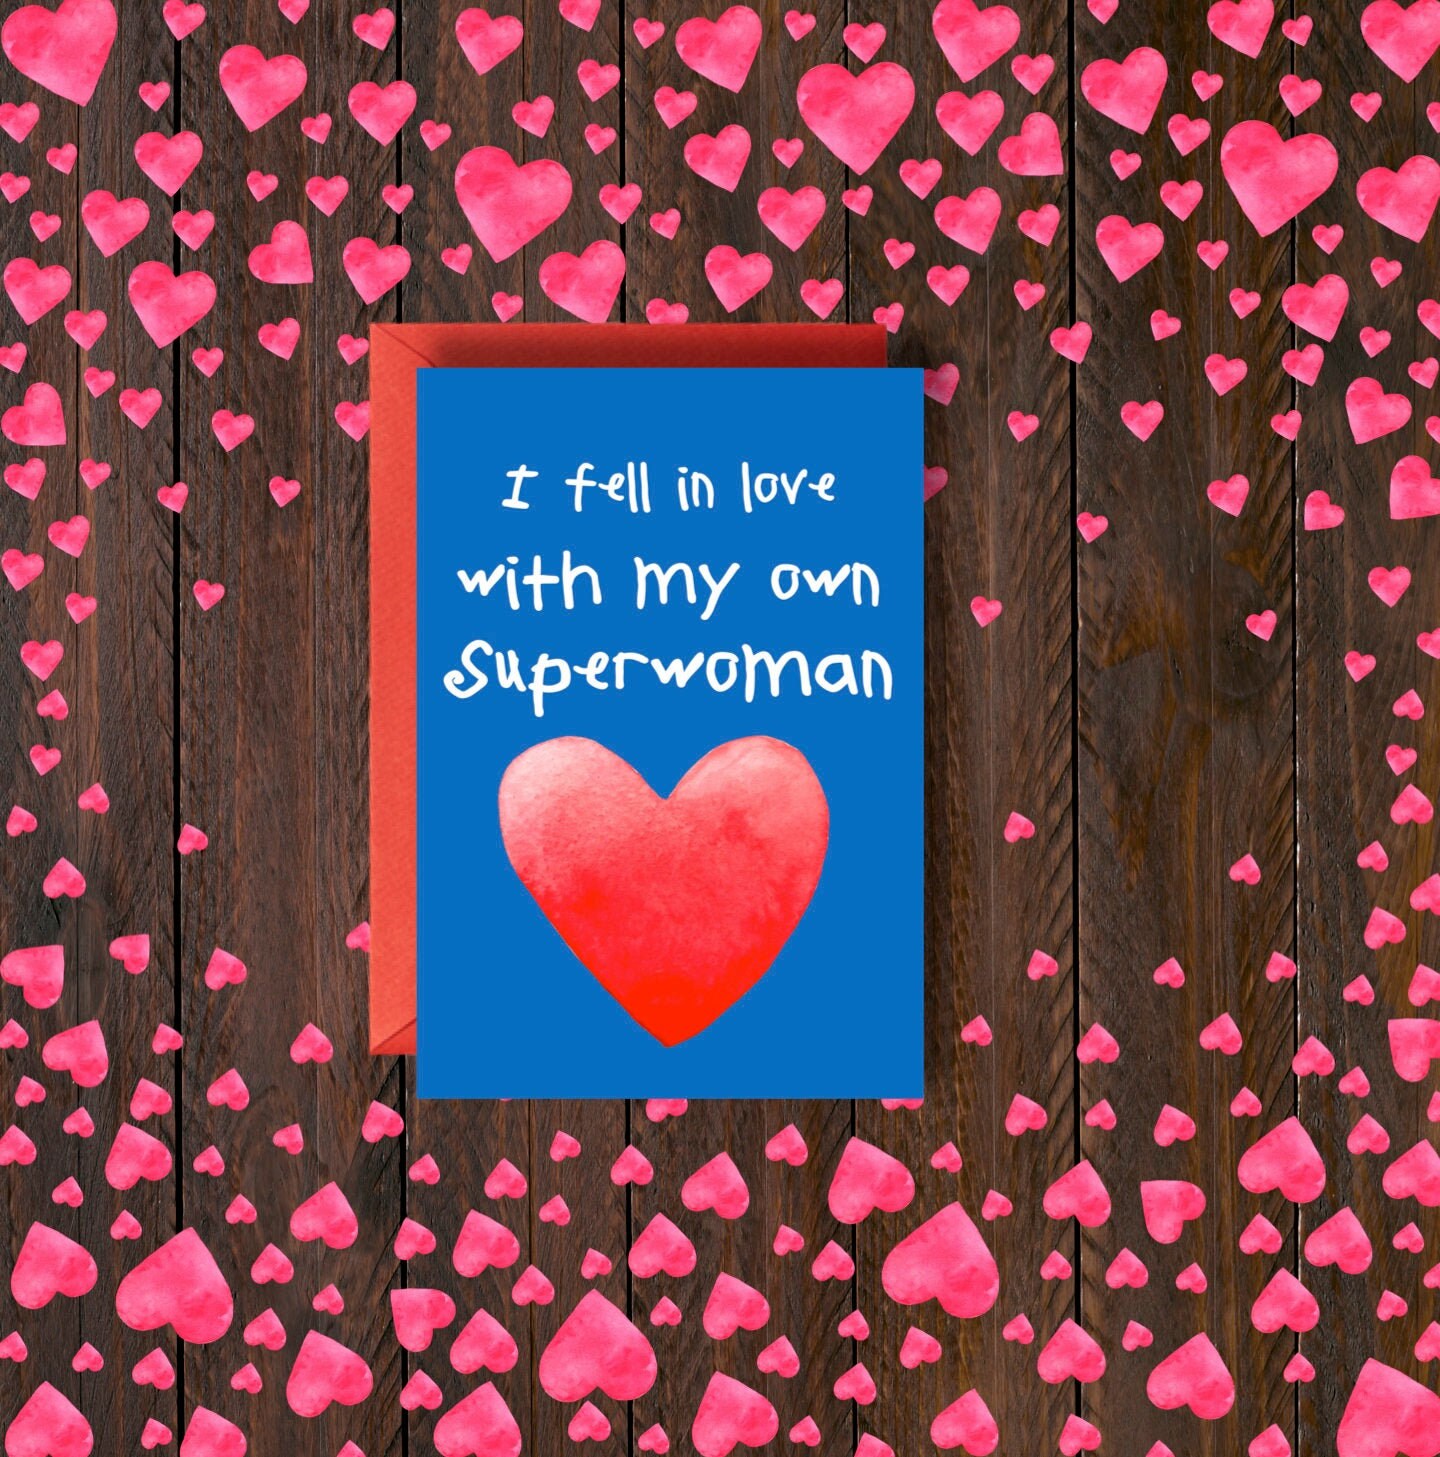 I fell in love
with my own
Superwoman